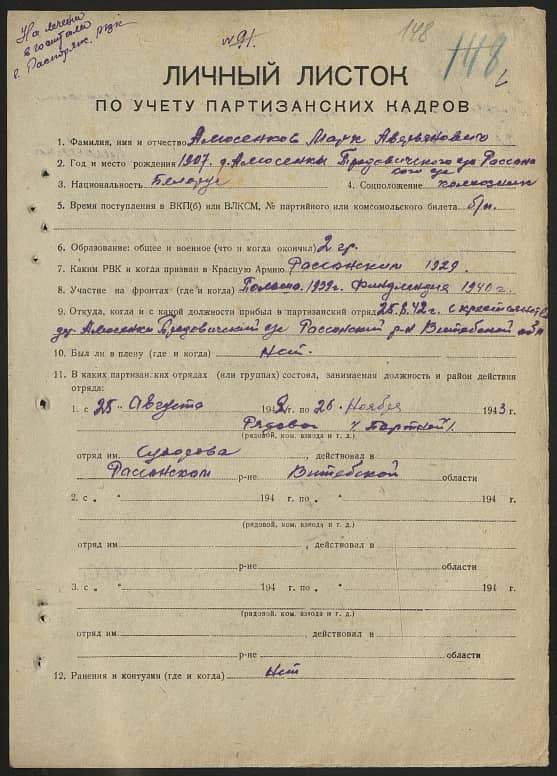 На лечении
в госпитале
г. Распоряж. РВК
№91.
148
148
ЛИЧНЫЙ ЛИСТОК
ПО УЧЕТУ ПАРТИЗАНСКИХ КАДРОВ
1. Фамилия, имя и отчество Амосенков Марк Аверьянович
2. Год и место рождения 1907. д. Амосенки Продовичского с/с Россон
ского
3. Национальность Беларус 4. Соцположение колхозник
5. Время поступления в ВКП(б) или ВЛКСМ, № партийного или комсомольского билета б/п.
6. Образование: общее и военное (что и когда окончил) 2 гр.
7. Каким РВК и когда призван в Красную Армию Россонским 1929.
8. Участие на фронтах (где и когда) Польша. 1939г. Финляндия 1940 г.
9. Откуда, когда и с какой должности прибыл в партизанский отряд 25.8.42г. с крестьянств
д. Амосенки Продовичский с/с Россонский р-н Витебской обл
10. Был ли в плену (где и когда) Нет.
11. В каких партизанских отрядах (или группах) состоял, занимаемая должность и район действия
отряда:
1. с 25 " Августа 1942 г. по 26 " Ноября 1943 г.
Рядовой
(рядовой, ком. взвода и т. д.)
отряд им. Суворова, действовал в
Россонском р-не Витебской области
2. с " " 194 г. по " " 194 г.
(рядовой, ком. взвода и т. д.)
отряд им , действовал в
р-не области
3. с " " 194 г. по " " 194 г.
(рядовой, ком. взвода и т. д.)
отряд им , действовал в
р-не области
12. Ранения и контузии (где и когда) Нет